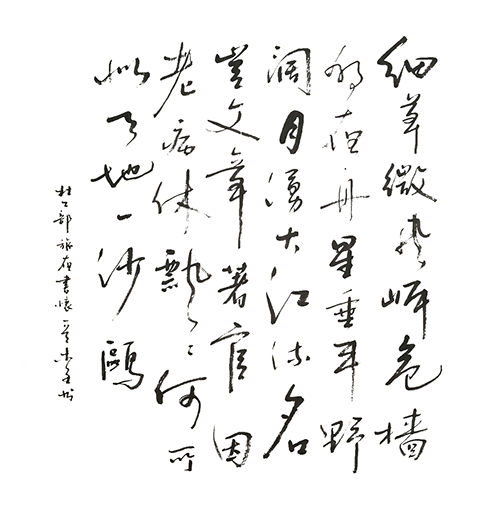 細草微風岸危檣
獨夜舟星垂平野
闊月湧大江流名
豈文章著官因
老病休飄〻何所
似天地一沙鷗
杜工部旅夜書懷一首